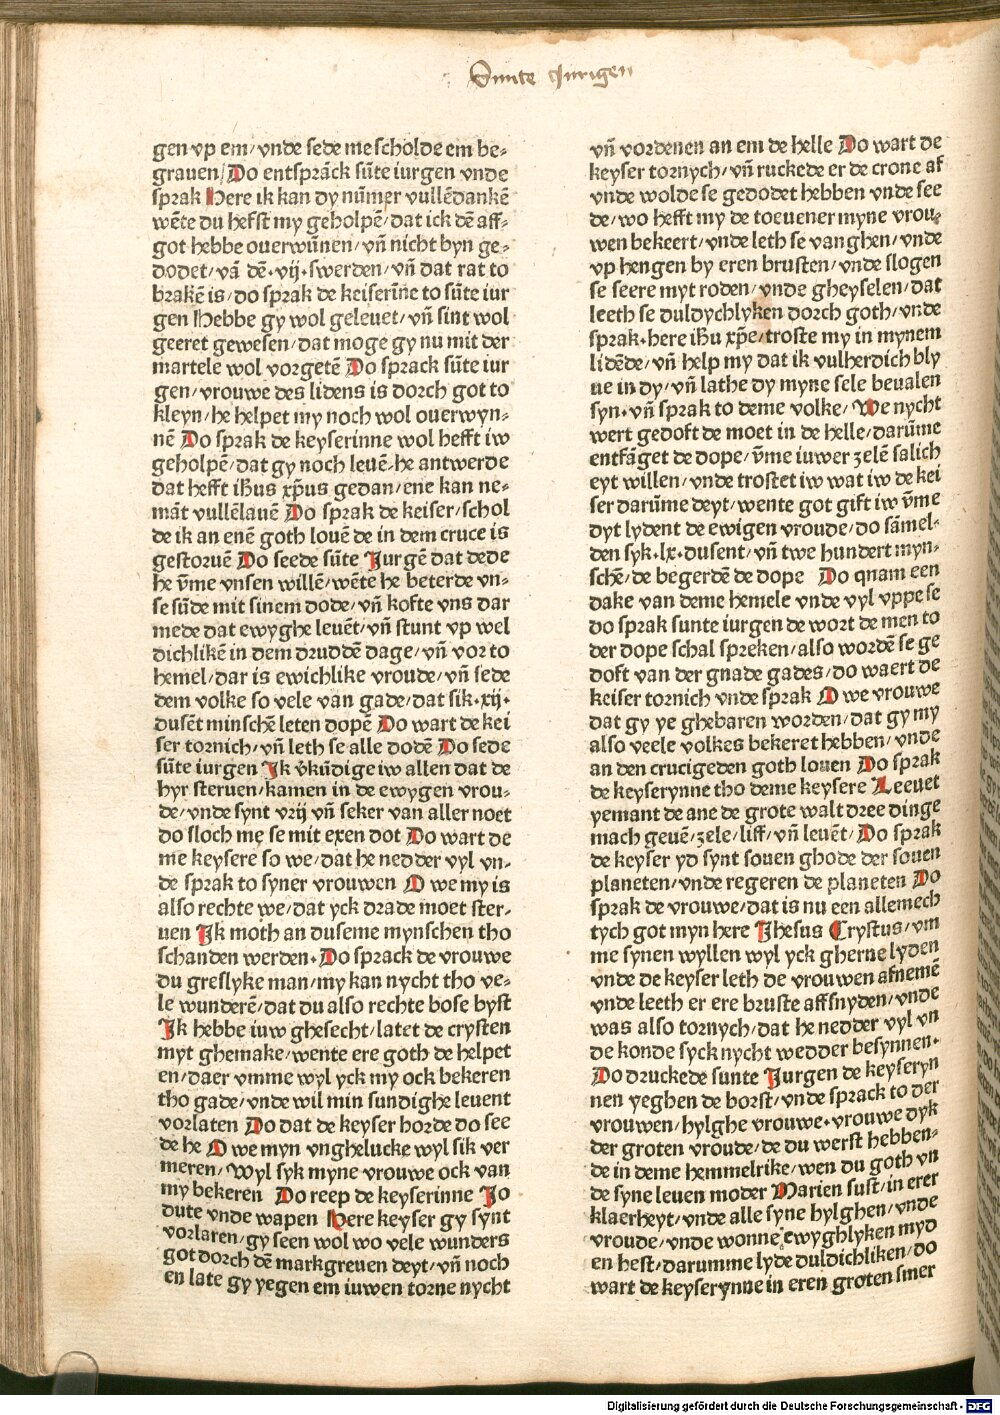 Sunte Jurigen
gen vp em/ vnde sede me scholde em be⸗
grauen/ Do entsprāck sūte iurgen vnde
sprak Here ik kan dy nūmer vullēdankē
wēte du hefst my geholpē/ dat ick dē aff⸗
got hebbe ouerwūnen/ vn̄ nicht byn ge⸗
dodet/ vā dē·vij·swerden/ vn̄ dat rat to
brakē is/ do sprak de keiserīne to sūte iur
gen Hebbe gy wol geleuet/ vn̄ sint wol
geeret gewesen/ dat moge gy nu mit der
martele wol vorgetē Do sprack sūte iur
gen/ vrouwe des lidens is dorch got to
kleyn/ he helpet my noch wol ouerwyn⸗
nē Do sprak de keyserinne wol hefft iw
geholpē/ dat gy noch leuē⸗he antwerde
dat hefft ihūs xp̄us gedan/ ene kan ne⸗
māt vullēlauē Do sprak de keiser/ schol
de ik an enē goth louē de in dem cruce is
gestoruē Do seede sūte Jurgē dat dede
he v̄me vnsen willē/ wēte he beterde vn⸗
se sūde mit sinem dode/ vn̄ kofte vns dar
mede dat ewyghe leuēt/ vn̄ stunt vp wel
dichlikē in dem druddē dage/ vn̄ vor to
hemel/ dar is ewichlike vroude/ vn̄ sede
dem volke so vele van gade/ dat sik·xij·
dusēt minschē leten dopē Do wart de kei
ser tornich/ vn̄ leth se alle dodē Do sede
sūte iurgen Jk v̄kūdige iw allen dat de
hyr steruen/ kamen in de ewygen vrou⸗
de/ vnde synt vrij vn̄ seker van aller noet
do sloch me se mit exen dot Do wart de
me keysere so we/ dat he nedder vyl vn⸗
de sprak to syner vrouwen O we my is
also rechte we/ dat yck drade moet ster⸗
uen Jk moth an duseme mynschen tho
schanden werden· Do sprack de vrouwe
du greslyke man/ my kan nycht tho ve⸗
le wunderē/ dat du also rechte bose byst
Jk hebbe iuw ghesecht/ latet de crysten
myt ghemake/ wente ere goth de helpet
en/ daer vmme wyl yck my ock bekeren
tho gade/ vnde wil min sundighe leuent
vorlaten Do dat de keyser horde do see
de he O we myn vnghelucke wyl sik ver
meren/ Wyl syk myne vrouwe ock van
my bekeren Do reep de keyserinne Jo
dute vnde wapen Here keyser gy synt
vorlaren/ gy seen wol wo vele wunders
got dorch dē markgreuen deyt/ vn̄ noch
en late gy yegen em iuwen torne nycht
vn̄ vordenen an em de helle Do wart de
keyser tornych/ vn̄ ruckede er de crone af
vnde wolde se gedodet hebben vnde see
de/ wo hefft my de toeuener myne vrou⸗
wen bekeert/ vnde leth se vanghen/ vnde
vp hengen by eren brusten/ vnde slogen
se seere myt roden/ vnde gheyselen/ dat
leeth se duldychlyken dorch goth/ vnde
sprak·here ihūu xp̄e/ troste my in mynem
lidēde/ vn̄ help my dat ik vulherdich bly
ue in dy/ vn̄ lathe dy myne sele beualen
syn·vn̄ sprak to deme volke/ We nycht
wert gedoft de moet in de helle/ darūme
entfāget de dope/ v̄me iuwer zelē salich
eyt willen/ vnde trostet iw wat iw de kei
ser darūme deyt/ wente got gift iw v̄me
dyt lydent de ewigen vroude/ do sāmel⸗
den syk·lx·dusent/ vn̄ twe hundert myn⸗
schē/ de begerdē de dope Do qnam een
dake van deme hemele vnde vyl vppe se
do sprak sunte iurgen de wort de men to
der dope schal spreken/ also wordē se ge
doft van der gnade gades/ do waert de
keiser tornich vnde sprak O we vrouwe
dat gy ye ghebaren worden/ dat gy my
also veele volkes bekeret hebben/ vnde
an den crucigeden goth louen Do sprak
de keyserynne tho deme keysere Leeuet
yemant de ane de grote walt dree dinge
mach geuē/ zele/ liff/ vn̄ leuēt/ Do sprak
de keyser yd synt souen ghode der souen
planeten/ vnde regeren de planeten Do
sprak de vrouwe/ dat is nu een allemech
tych got myn here Jhesus Crystus/ vm
me synen wyllen wyl yck gherne lyden
vnde de keyser leth de vrouwen afnemē
vnde leeth er ere bruste affsnyden/ vnde
was also tornych/ dat he nedder vyl vn
de konde syck nycht wedder besynnen·
Do druckede sunte Jurgen de keyseryn
nen yeghen de borst/ vnde sprack to der
vrouwen/ hylghe vrouwe·vrouwe dyk
der groten vroude/ de du werst hebben⸗
de in deme hemmelrike/ wen du goth vn
de syne leuen moder Marien sust/ in erer
klaerheyt/ vnde alle syne hylghen/ vnde
vroude/ vnde wonne ewyghlyken myd
en hest/ darumme lyde duldichliken/ do
wart de keyserynne in eren groten smer
Digitalisierung gefördert durch die Deutsche Forschungsgemeinschaft - DFG